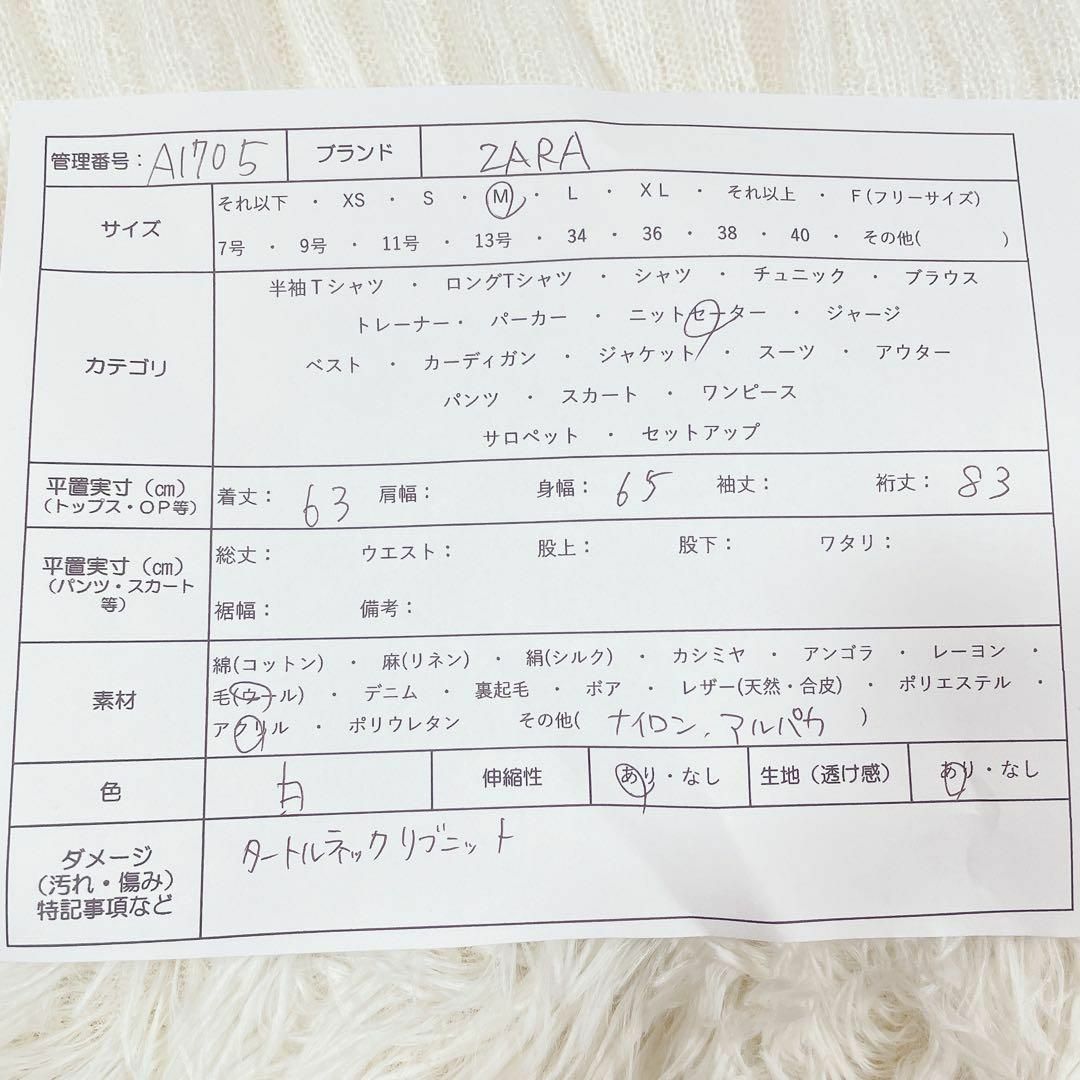 管理番号：A1705 ブランド ZARA
サイズ
それ以下 ・ XS ・ S ・ M ・ L ・ XL ・ それ以上 ・ F(フリーサイズ)
7号 ・ 9号 ・ 11号 ・ 13号 ・ 34 ・ 36 ・ 38 ・ 40 ・ その他( )
カテゴリ
半袖Tシャツ ・ ロングTシャツ ・ シャツ ・ チュニック ・ ブラウス
トレーナー・ パーカー ・ ニットセーター ・ ジャージ
ベスト ・ カーディガン ・ ジャケット ・ スーツ ・ アウター
パンツ ・ スカート ・ ワンピース
サロペット ・ セットアップ
平置実寸（㎝）
（トップス・OP等）
着丈：63 肩幅： 身幅：65 袖丈： 裄丈：83
平置実寸（㎝）
（パンツ・スカート
等）
総丈： ウエスト： 股上： 股下： ワタリ：
裾幅： 備考：
素材
綿(コットン) ・ 麻(リネン) ・ 絹(シルク) ・ カシミヤ ・ アンゴラ ・ レーヨン ・
毛(ウール) ・ デニム ・ 裏起毛 ・ ボア ・ レザー(天然・合皮) ・ ポリエステル ・
アクリル ・ ポリウレタン その他( ナイロン、アルパカ )
色 白 伸縮性 あり・なし 生地（透け感） あり・なし
ダメージ
（汚れ・傷み）
特記事項など
タートルネックリブニット